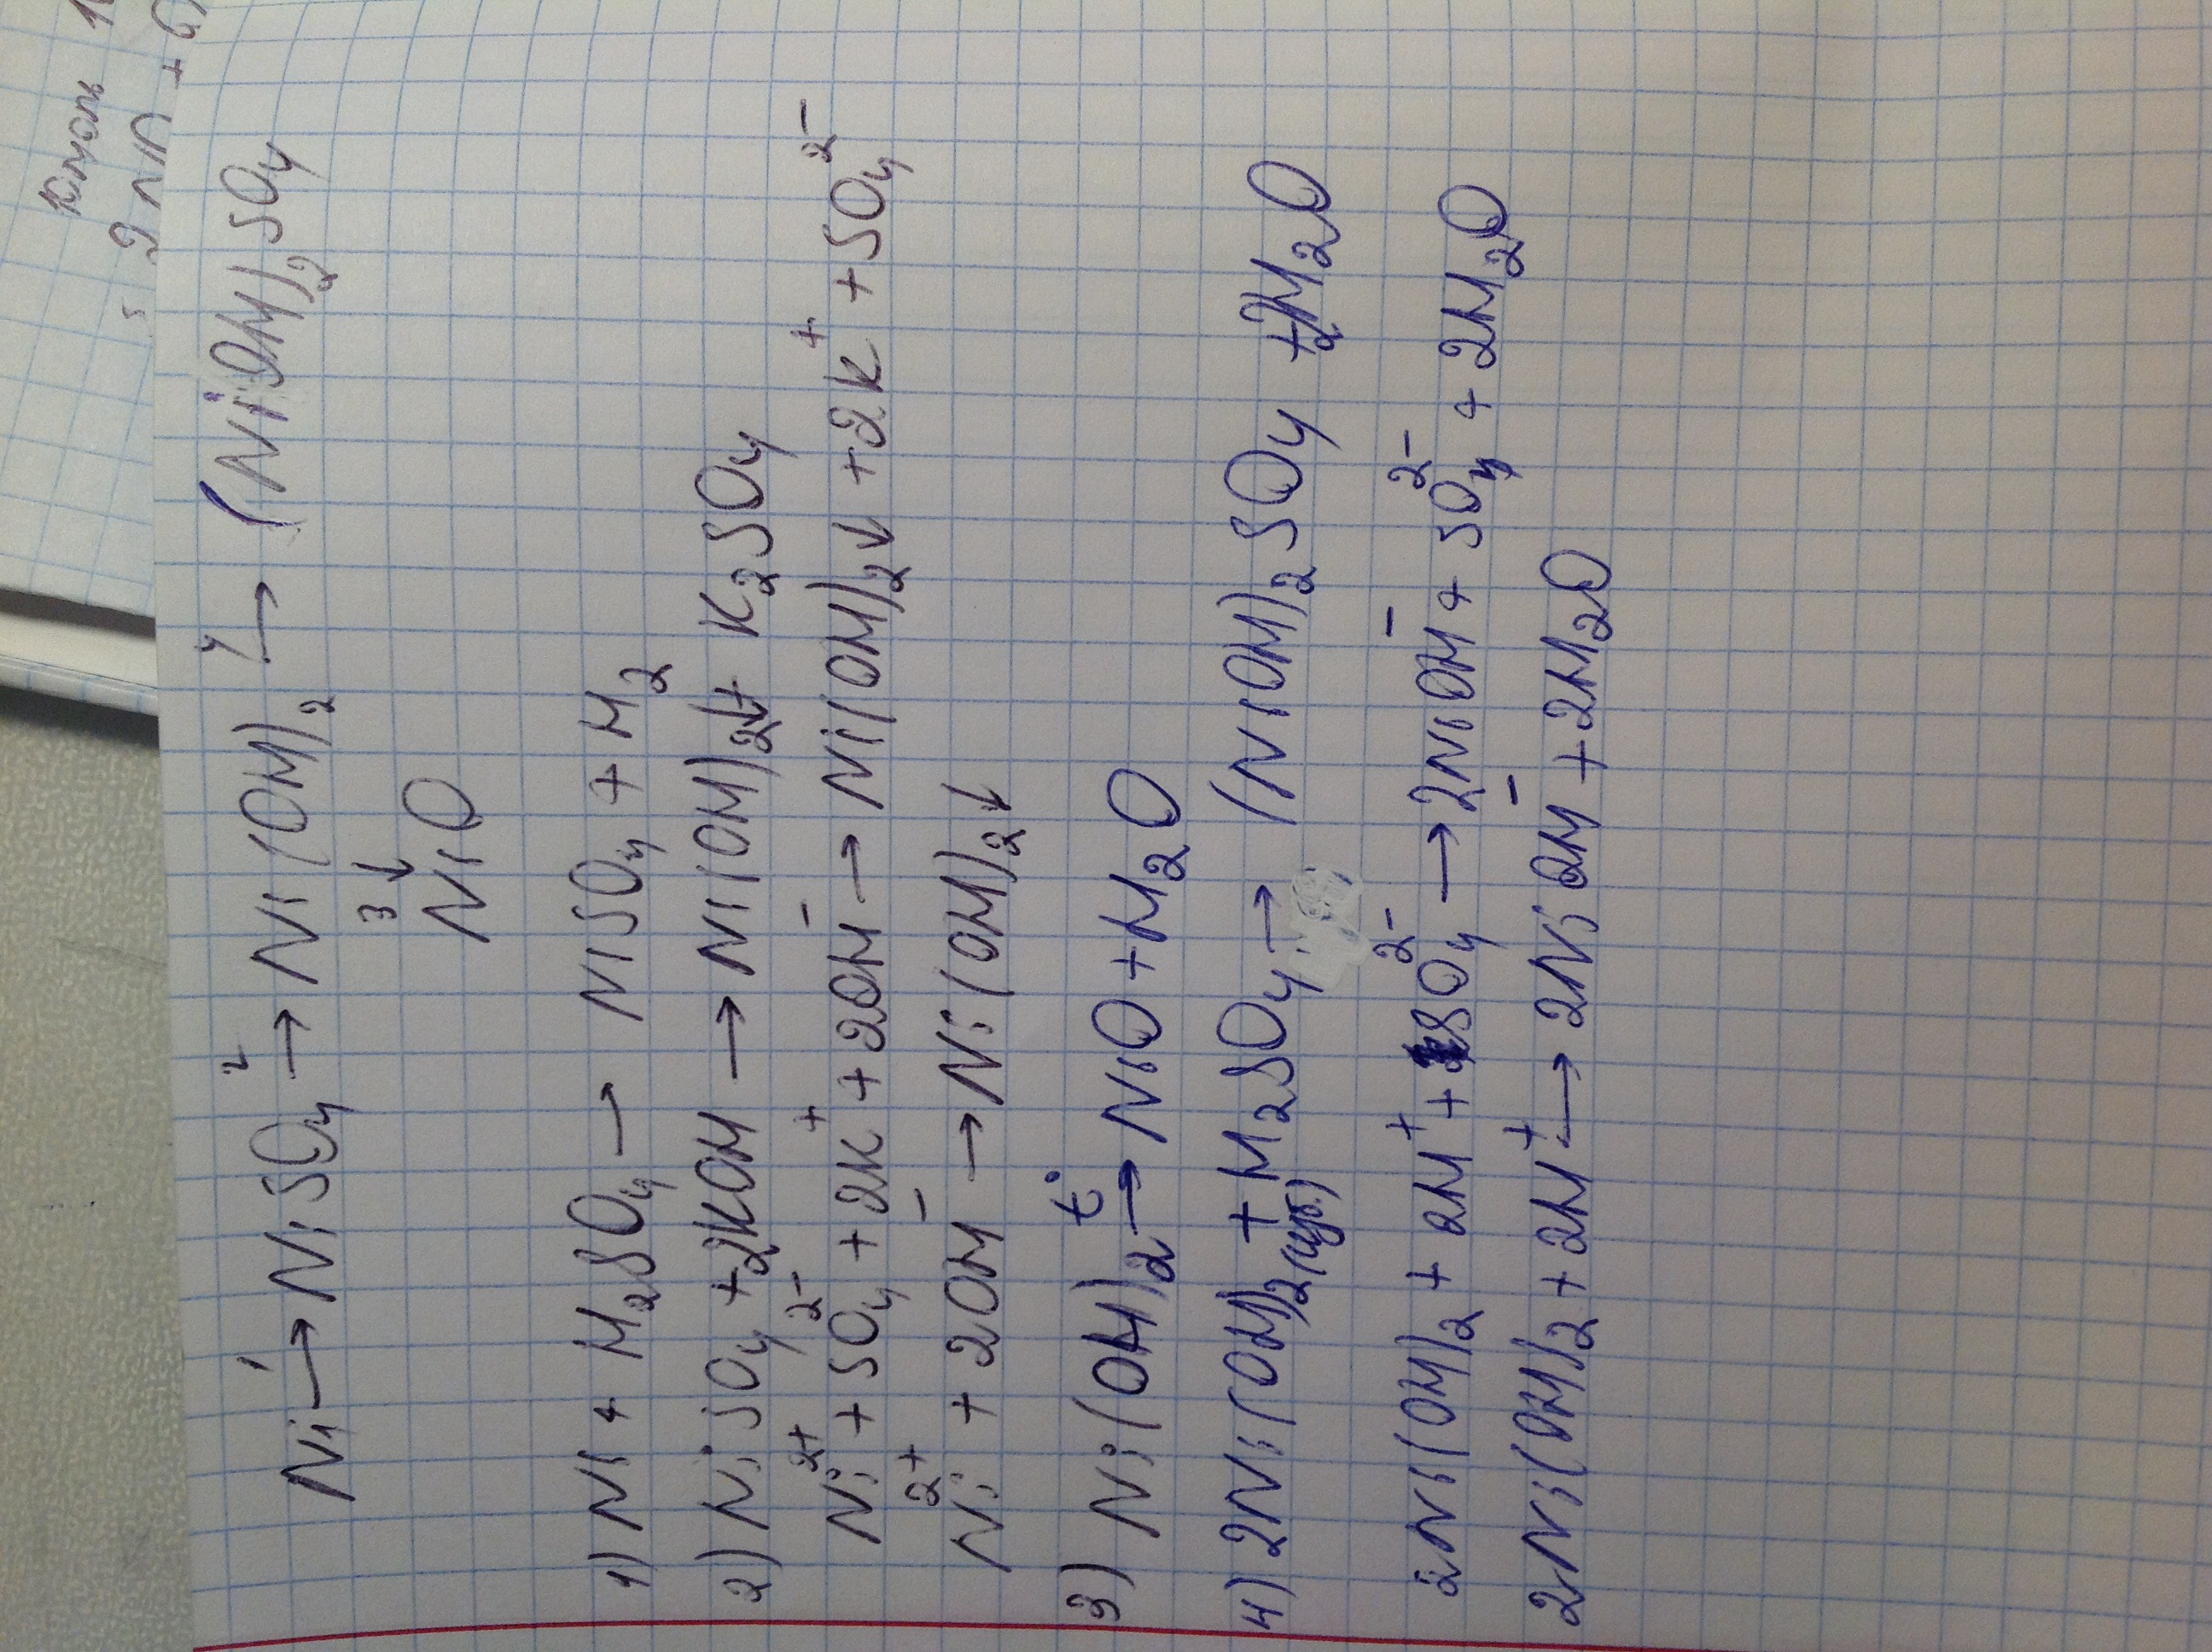 Ni →¹ NiSO₄ →² Ni(OH)₂ →⁴ (NiOH)₂SO₄
3↓
NiO
1) Ni + H₂SO₄ → NiSO₄ + H₂
2) NiSO₄ + 2KOH → Ni(OH)₂↓ + K₂SO₄
Ni²⁺ + SO₄²⁻ + 2K⁺ + 2OH⁻ → Ni(OH)₂↓ + 2K⁺ + SO₄²⁻
Ni²⁺ + 2OH⁻ → Ni(OH)₂↓
3) Ni(OH)₂ →t° NiO + H₂O
4) 2Ni(OH)₂(изб.) + H₂SO₄ → (NiOH)₂SO₄ + 2H₂O
2Ni(OH)₂ + 2H⁺ + SO₄²⁻ → 2NiOH⁻ + SO₄²⁻ + 2H₂O
2Ni(OH)₂ + 2H⁺ → 2NiOH⁻ + 2H₂O